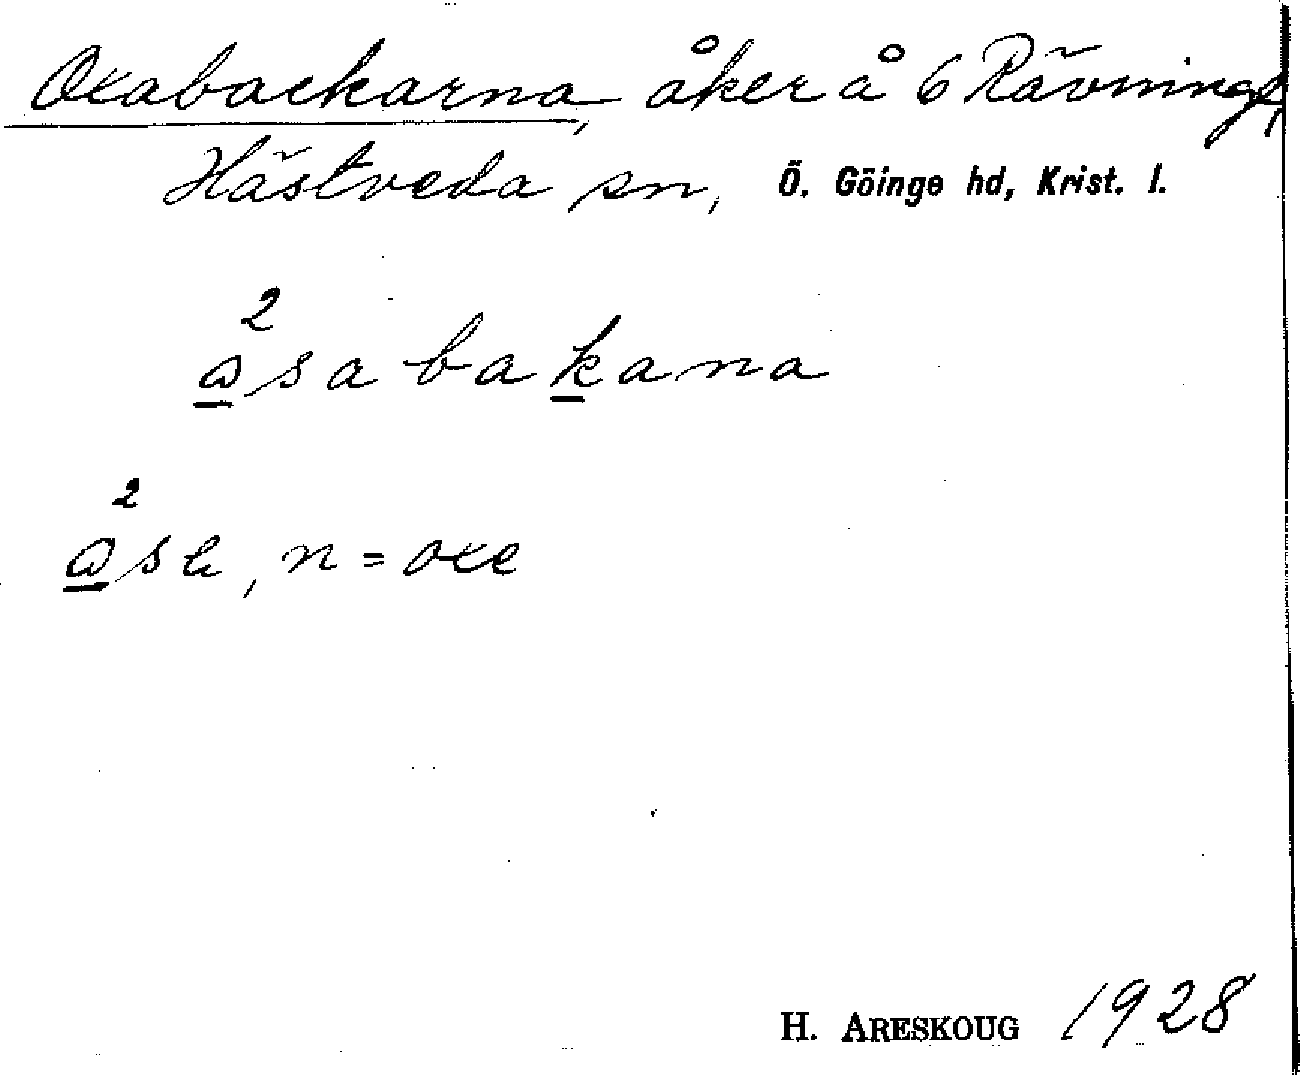 Oxabackarna, åker å 6 Rävninge,
Hästveda sn, Ö. Göinge hd, Krist. l.
2
asabakana
2
ase, n = oxe
H. ARESKOUG 1928